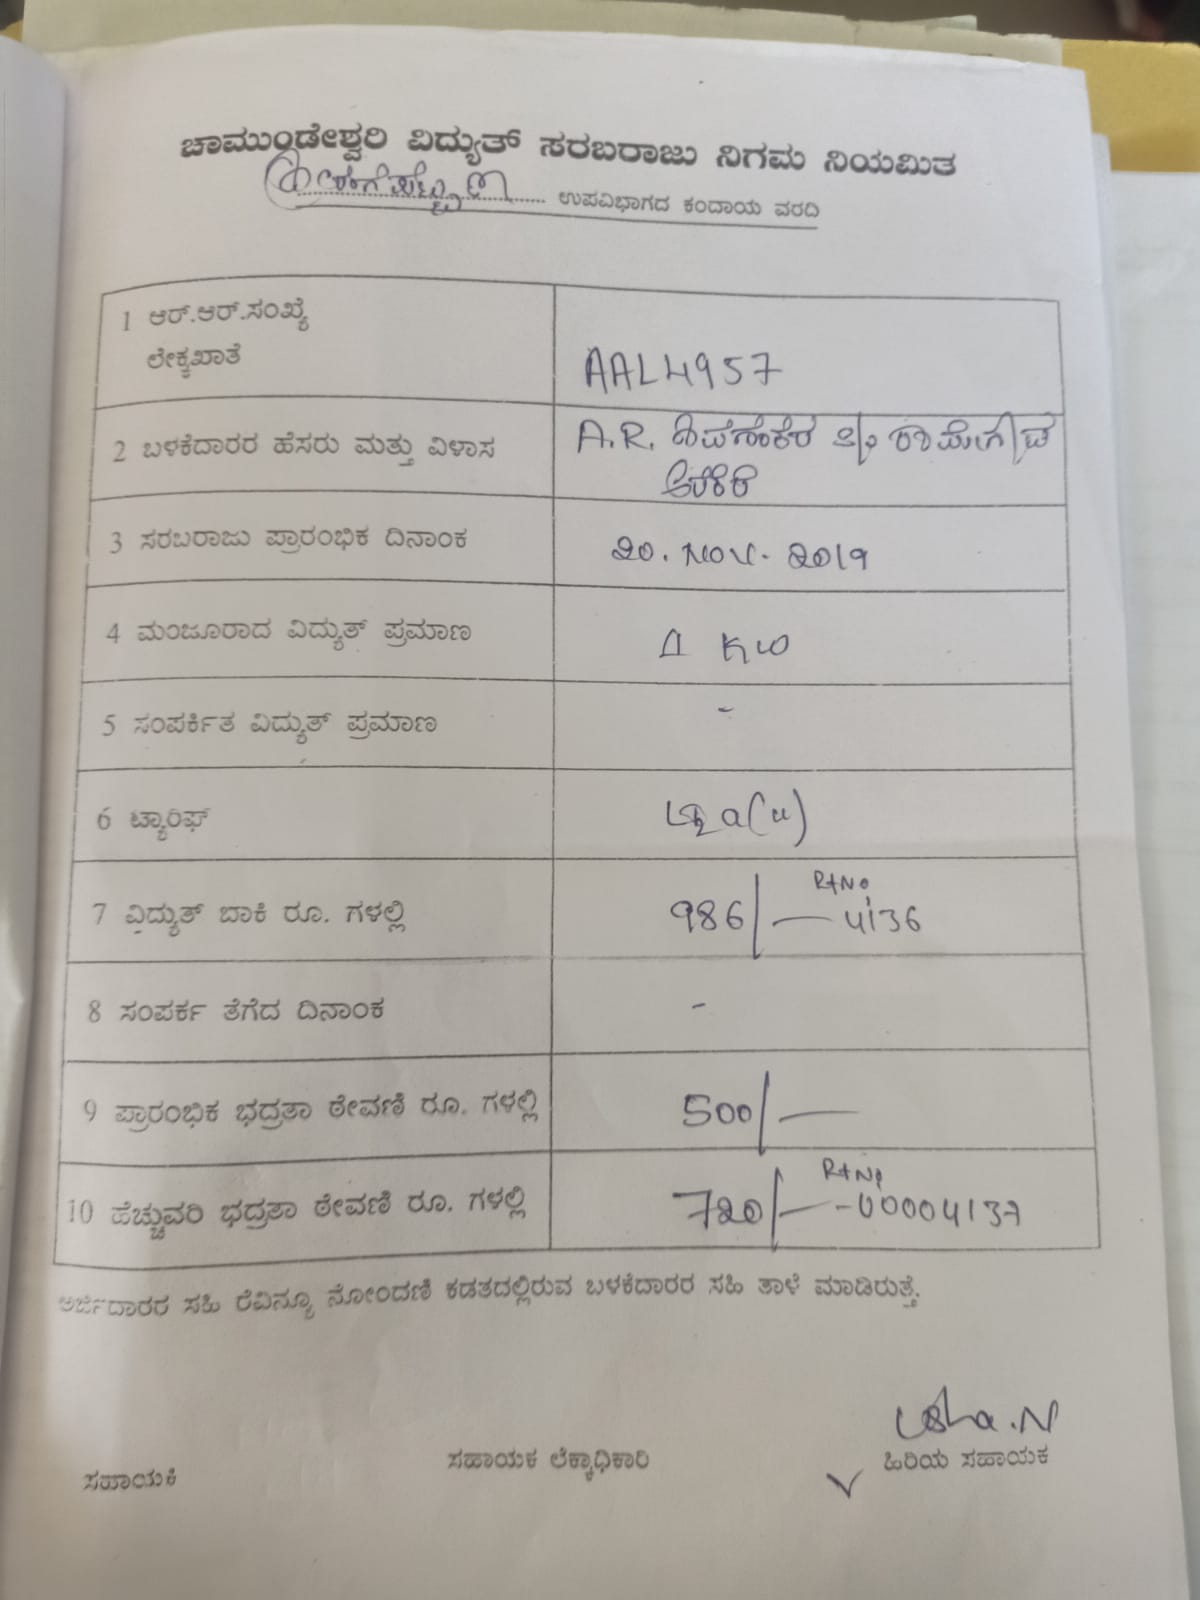 ಚಾಮುಂಡೇಶ್ವರಿ ವಿದ್ಯುತ್ ಸರಬರಾಜು ನಿಗಮ ನಿಯಮಿತ
ಶ್ರೀರಂಗಪಟ್ಟಣ ಉಪವಿಭಾಗದ ಕಂದಾಯ ವರದಿ
1 ಆರ್.ಆರ್.ಸಂಖ್ಯೆ
ಲೇಕ್ಕಖಾತೆ AAL4957
2 ಬಳಕೆದಾರರ ಹೆಸರು ಮತ್ತು ವಿಳಾಸ A.R.
3 ಸರಬರಾಜು ಪ್ರಾರಂಭಿಕ ದಿನಾಂಕ 20. NOV. 2019
4 ಮಂಜೂರಾದ ವಿದ್ಯುತ್ ಪ್ರಮಾಣ 1 KW
5 ಸಂಪರ್ಕಿತ ವಿದ್ಯುತ್ ಪ್ರಮಾಣ -
6 ಟ್ಯಾರಿಫ್
7 ವಿದ್ಯುತ್ ಬಾಕಿ ರೂ. ಗಳಲ್ಲಿ 986/— RtNo 4136
8 ಸಂಪರ್ಕ ತೆಗೆದ ದಿನಾಂಕ -
9 ಪ್ರಾರಂಭಿಕ ಭದ್ರತಾ ಠೇವಣಿ ರೂ. ಗಳಲ್ಲಿ 500/—
10 ಹೆಚ್ಚುವರಿ ಭದ್ರತಾ ಠೇವಣಿ ರೂ. ಗಳಲ್ಲಿ 720/— RtNo -00004137
ಅರ್ಜಿದಾರರ ಸಹಿ ರೆವಿನ್ಯೂ ನೋಂದಣಿ ಕಡತದಲ್ಲಿರುವ ಬಳಕೆದಾರರ ಸಹಿ ತಾಳೆ ಮಾಡಿರುತ್ತೆ.
Usha.N
ಸಹಾಯಕಿ ಸಹಾಯಕ ಲೆಕ್ಕಾಧಿಕಾರಿ ಹಿರಿಯ ಸಹಾಯಕ